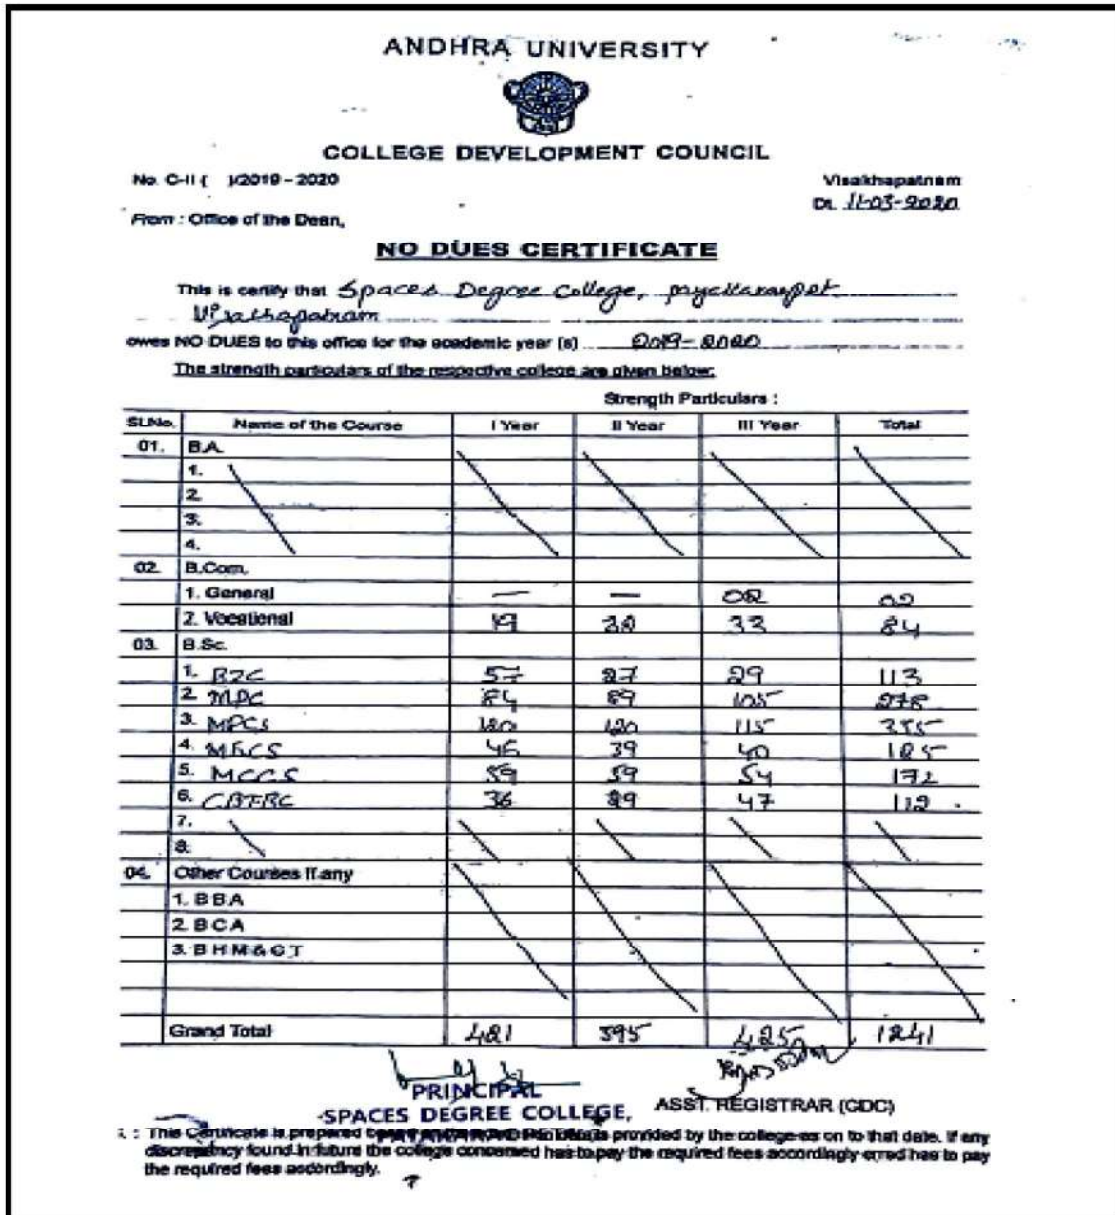 ANDHRA UNIVERSITY
COLLEGE DEVELOPMENT COUNCIL
No. C-II ( )/2019 - 2020 Visakhapatnam
Dt. 11-03-2020
From : Office of the Dean,
NO DUES CERTIFICATE
This is certify that Spaces Degree College,
owes NO DUES to this office for the academic year (s) 2019-2020
The strength particulars of the respective college are given below:
Strength Particulars :
Sl.No. Name of the Course I Year II Year III Year Total
01. B.A.
1.
2.
3.
4.
02. B.Com.
1. General — — 02 02
2. Vocational 19 33 84
03. B.Sc.
1. BZC 57 27 29 113
2. MPC 84 89 105 278
3. MPCS 120 120 115 355
4. 46 39 40 125
5. MCCS 59 59 54 172
6. 36 29 47 112
7.
8.
04. Other Courses If any
1. B B A
2. B C A
3. B H M & C T
Grand Total 421 395 425 1241
PRINCIPAL
SPACES DEGREE COLLEGE, ASST. REGISTRAR (CDC)
This Certificate is prepared provided by the college as on to that date. If any
discrepancy found in future the college concerned has to pay the required fees accordingly has to pay
the required fees accordingly.